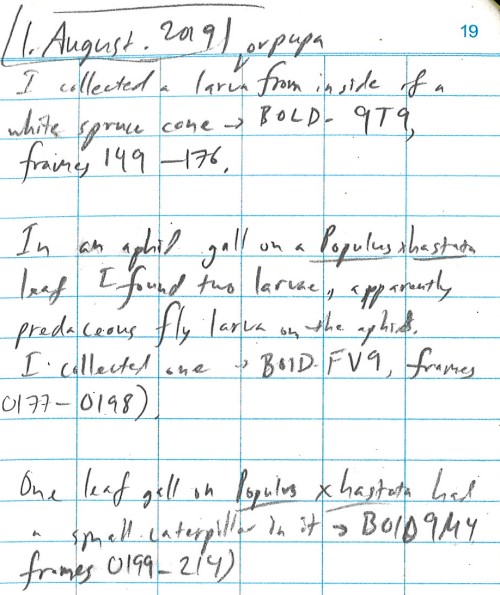 19
1. August. 2019 or pupa
I collected a larva from inside of a
white spruce cone → BOLD-9T9,
frames 149 – 176.
In an aphid gall on a Populus xhastata
leaf I found two larvae, apparently
predaceous fly larva on the aphids.
I collected one → BOLD-FV9, frames
0177 – 0198).
One leaf gall on Populus x hastata had
a small caterpillar in it → BOLD9MY
frames 0199 – 214)